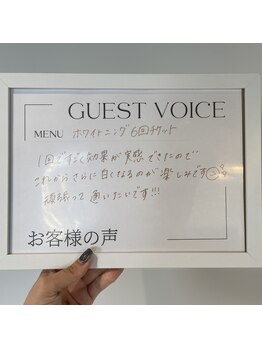 GUEST VOICE
MENU ホワイトニング6回チケット
1回ですごく効果が実感できたので
これからさらに白くなるのが楽しみです
頑張って通いたいです!!!
お客様の声